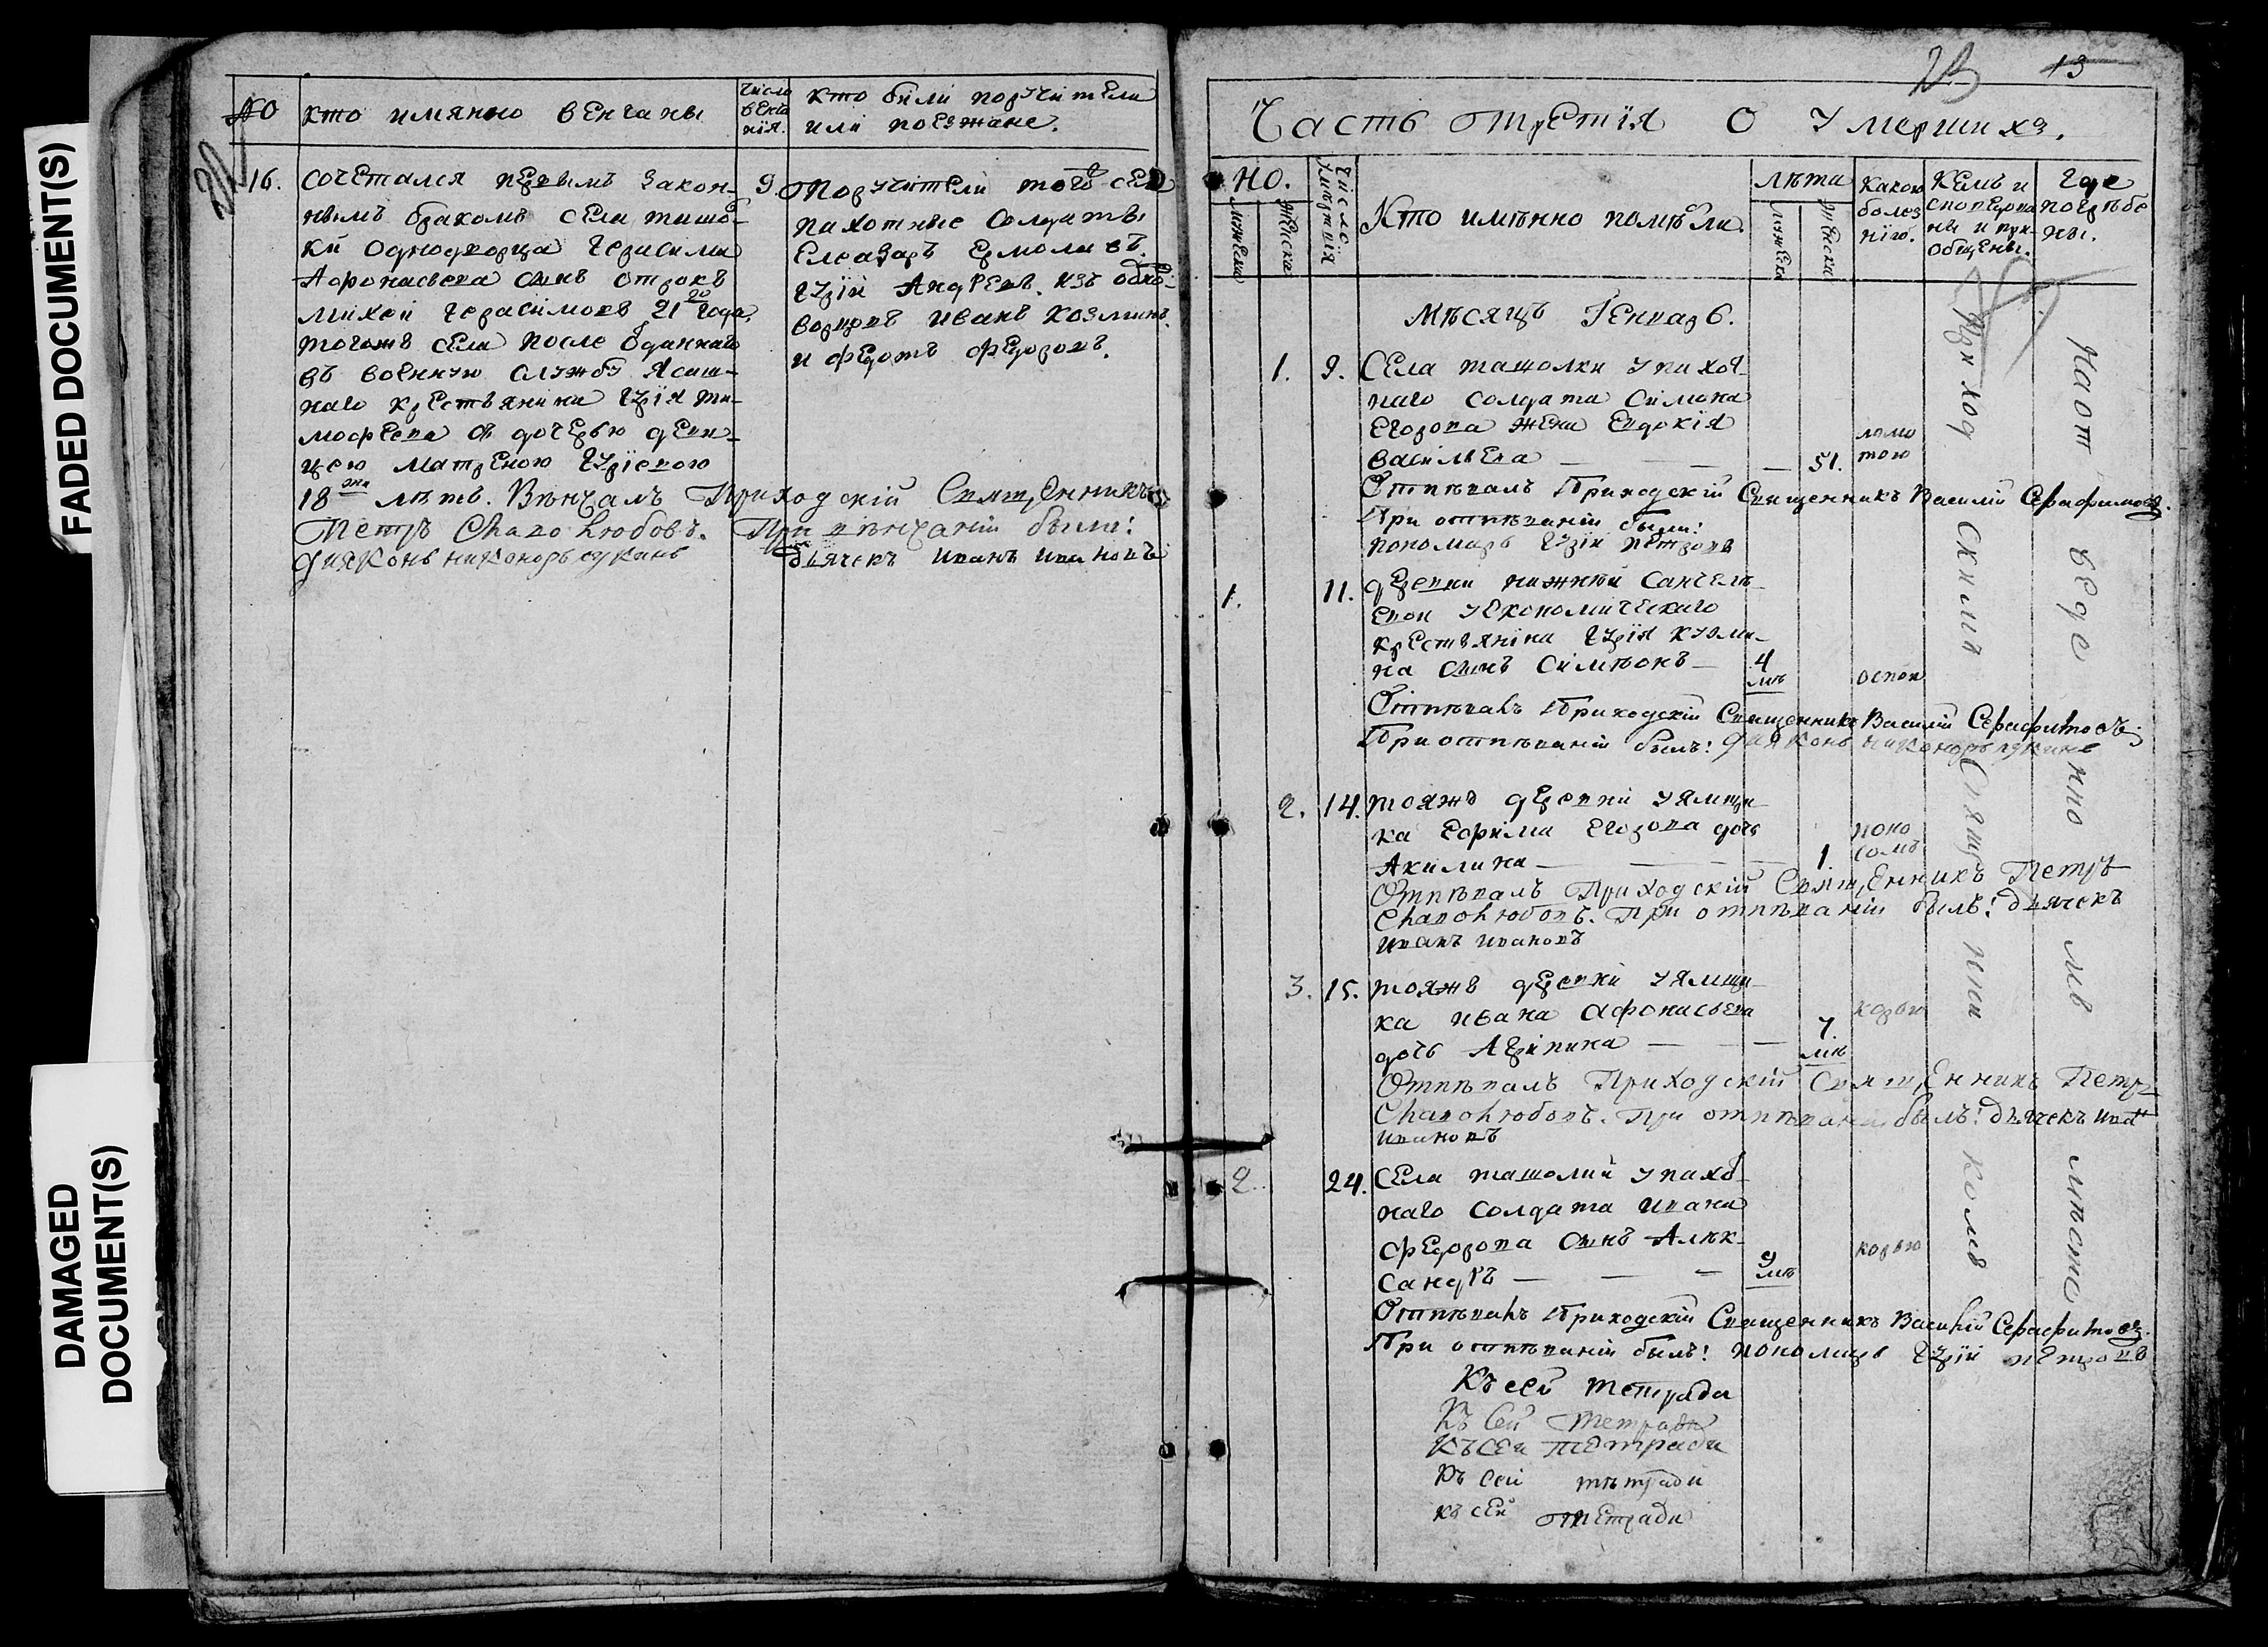 FADED DOCUMENT(S)
DAMAGED
DOCUMENT(S)
NO
кто имянно венчаны
число
венча
нїя.
кто были поручители
или поезжане.
16.
сочетался первымъ закон-
нымъ бракомъ села ташол-
ки однодворца Герасима
Афонасьева сынъ отрокъ
михей герасимовъ 21 го года,
тогожъ села после отданнаго
въ военную службу ясаш-
наго крестьянина Гурїя ти-
мофеева съ дочерью деви-
цею матреною Гурїевою
18 лѣтъ. Вѣнчалъ Приходскїй Священникъ
Петръ Славолюбовъ. При вѣнчанїи были:
дияконъ никоноръ лукинъ
дьячекъ иванъ ивановъ
9.
Поручители тогожъ села
пахотные солдаты
Елеазаръ Ермолаевъ.
Гурїй Андреевъ. изъ одно-
ворцовъ иванъ козминъ.
и федотъ федоровъ.
23 13
Часть третїя О Умершихъ.
НО.
мужеска
женска
число
умертвїя
Кто имѣнно помѣрли.
лѣта
мужеска
женска
какою
болез
нїю.
Кемъ и
споведа
ны и прі-
общены.
где
погребе
ны.
мѣсяцъ Генварь.
1. 9.
Села ташолки у пахот-
наго солдата Симона
Егорова жена Евдокїя
васильева — 51.
ломо
тою
Отпѣвалъ Приходскїй Священникъ Василїй Серафимовъ.
При отпѣванїи былъ:
пономарь Гурїй петровъ
1. 11.
деревни нижней Санчеле-
евои у економическаго
крестьянина Гурїя кузми-
на сынъ Симѣонъ — 4
мѣ
оспои
Отпѣвалъ Приходскїй Священникъ Василїй Серафимовъ.
При отпѣванїи былъ: дияконъ никоноръ лукинъ
2. 14.
тояжъ деревни у ямщи-
ка Ефима Егорова дочь
Акилина — 1.
поно
сомъ
Отпѣвалъ Приходскїй Священникъ Петръ
Славолюбовъ. При отпѣванїи былъ: дьячекъ
иванъ ивановъ
3. 15.
тояжъ деревни у ямщи-
ка ивана афонасьева
дочь Агрипина — 7.
мѣ
корью
Отпѣвалъ Приходскїй Священникъ Петръ
Славолюбовъ. При отпѣванїи былъ: дьячекъ иванъ
ивановъ
2. 24.
Села ташолки у пахот-
наго солдата ивана
федорова сынъ Алек-
сандръ — 9
мѣ
корью
Отпѣвалъ Приходскїй Священникъ Василїй Серафимовъ.
При отпѣванїи былъ: пономарь Гурїй петровъ
Къ сей тетради
Къ сей тетради
Къ сей тетради
Къ сей тетради
къ сей тетради
Приходскимъ Священникомъ
На отведенномъ мѣсте